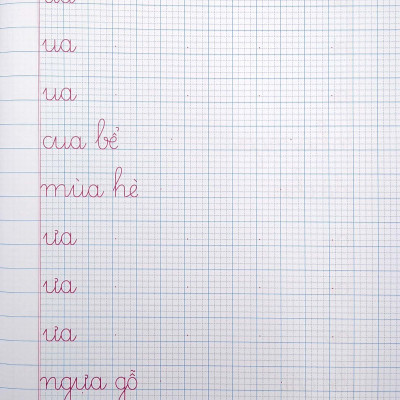 ua
ua
cua bể
mùa hè
ưa
ưa
ưa
ngựa gỗ